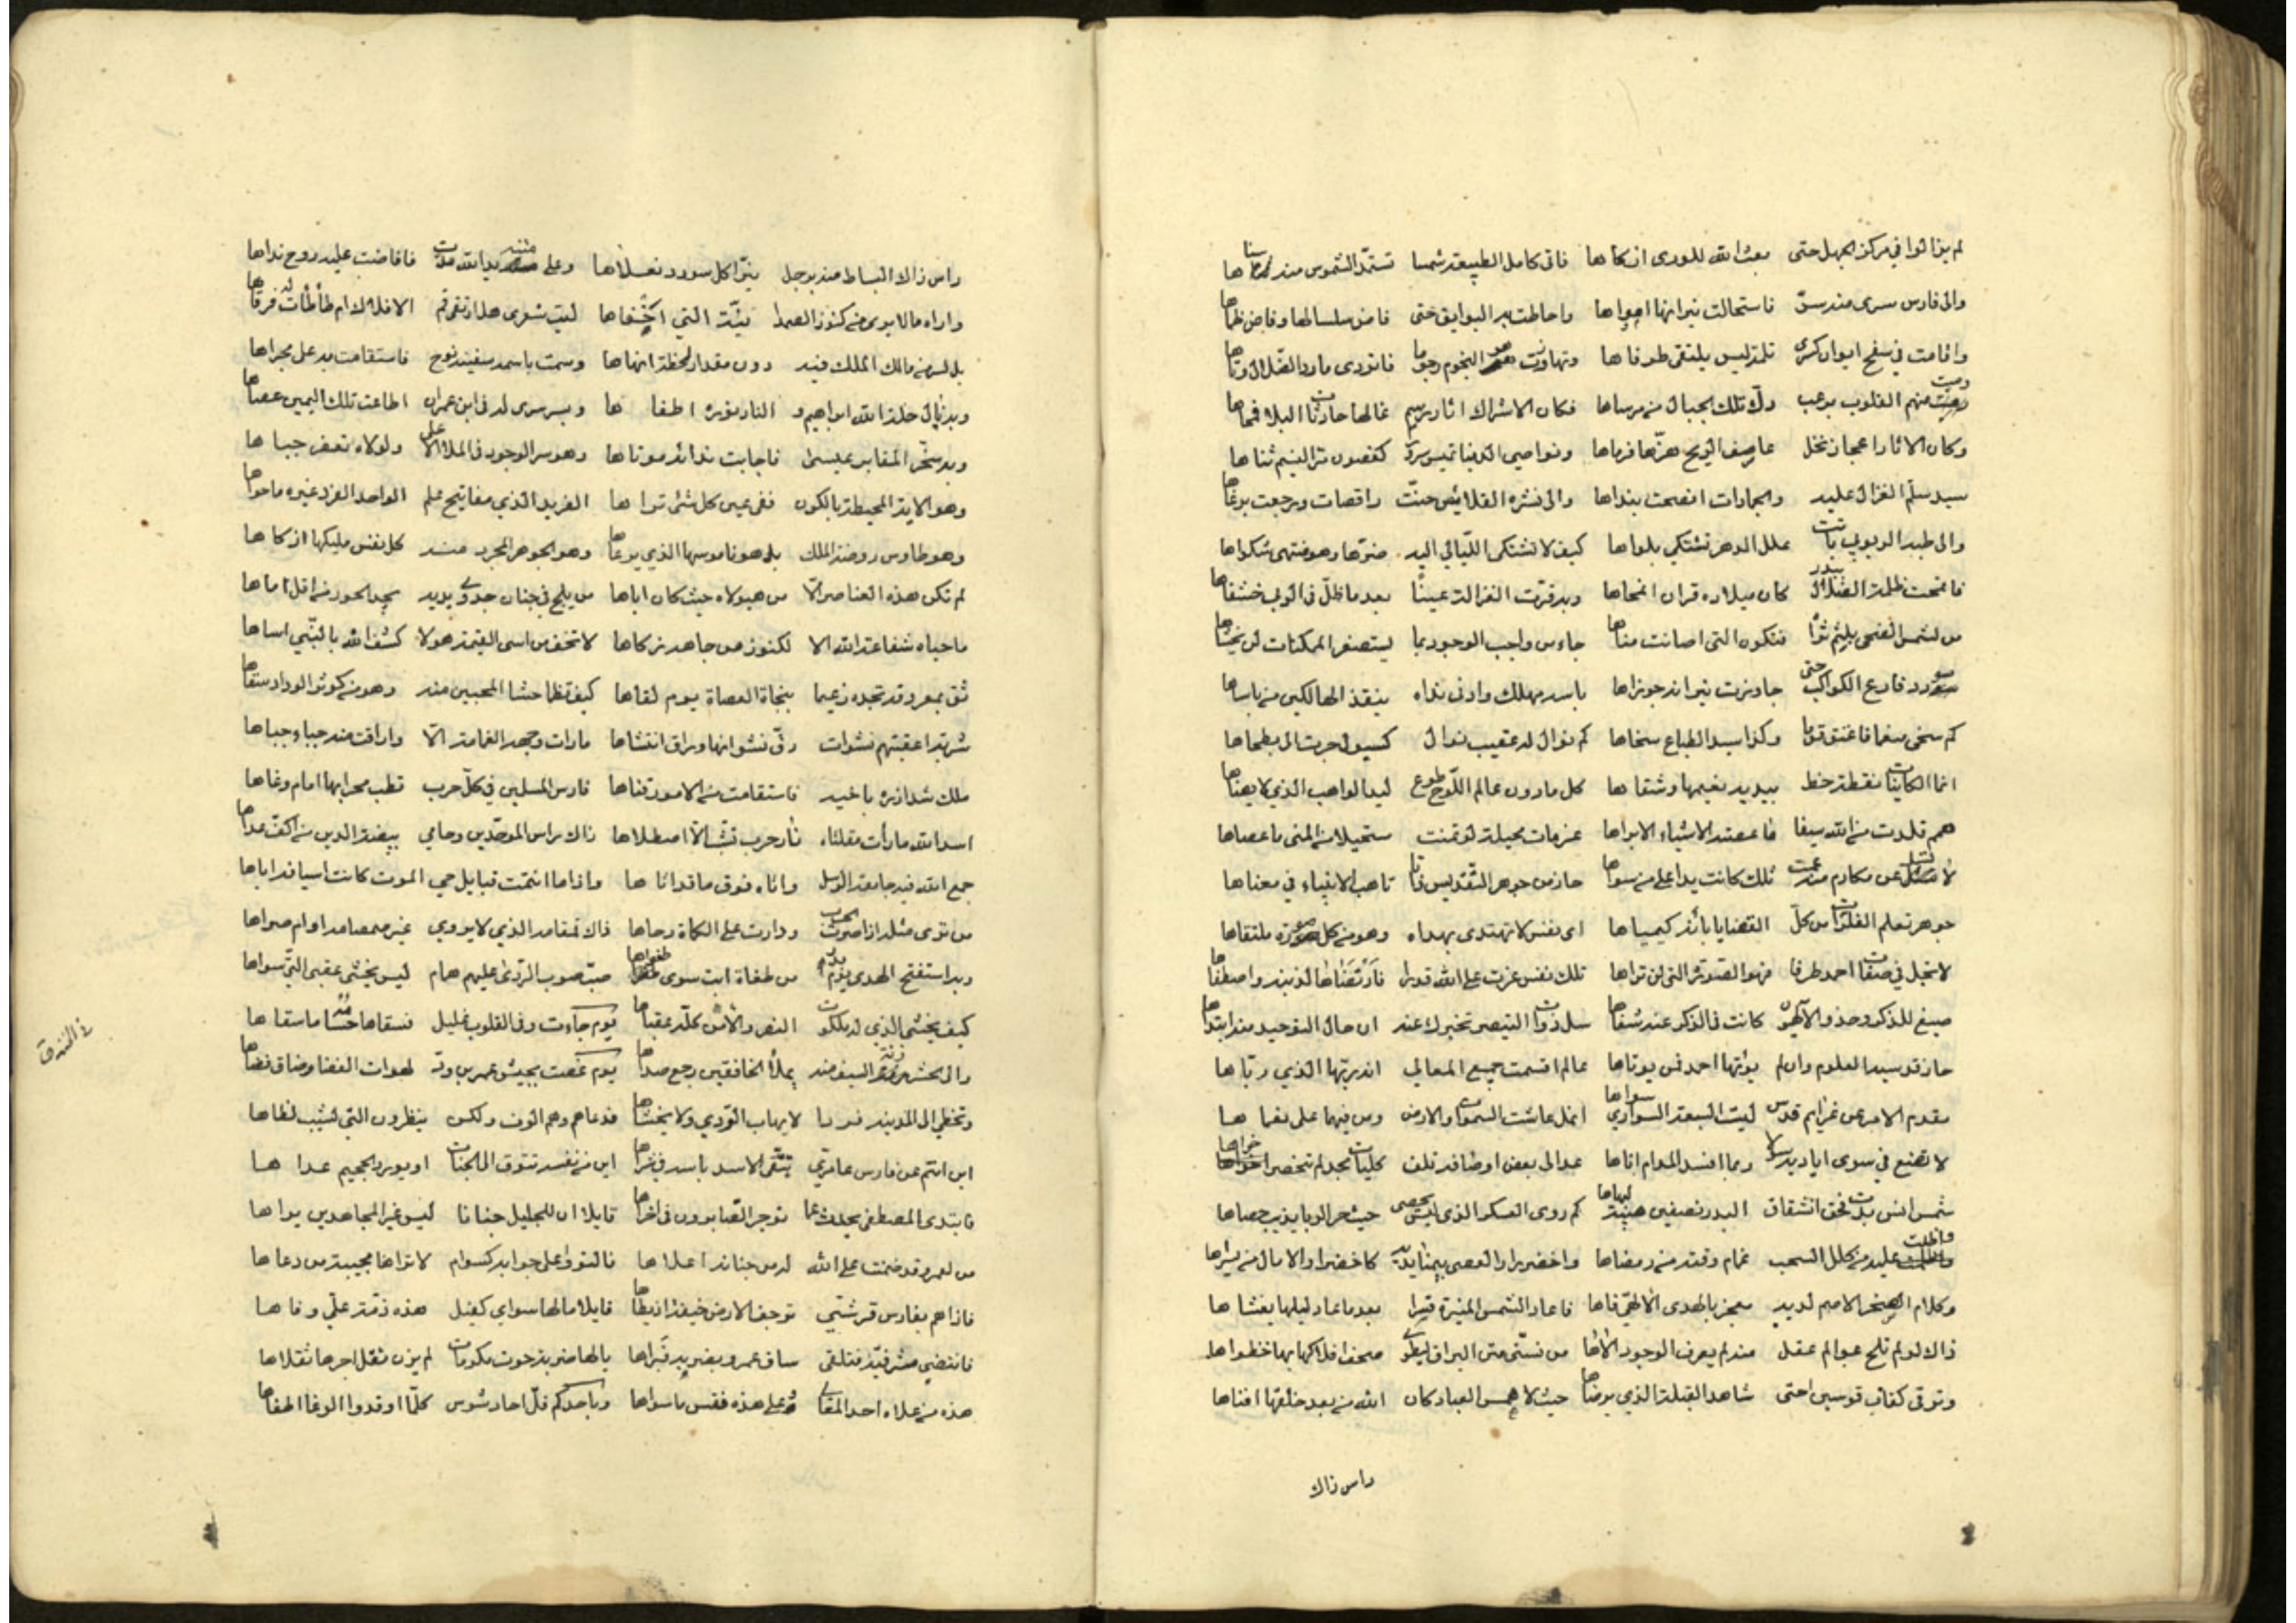 لم يزالوا في مركز الجهل حتى بعث الله للورى ازكاها فاتى كامل الطبيعة شمسا تستمد الشموس منه سناها
والى فارس سرى منه سر فاستحالت نيرانها امواها واحاطت به البوايق حتى غاض سلسالها وفاض ظماها
واقامت في سفح ايوان كسرى ثلمة ليس يلتقى طرفاها وتهاوت به النجوم رجوما فانزوى مارد الضلال وتاها
ورميت منهم القلوب برعب دك تلك الجبال من مرساها فكان الاشراك اثار رسم غالها حادثات البلا فمحاها
وكان الاثار اعجاز نخل عاصف الريح هزها فرماها ونواصي الدنيا تميس سرورا كغصون مر النسيم ثناها
سيد سلم الغزال عليه والجمادات افصحت بنداها والى نشره القلائص حنت راقصات ورجعت برغاها
والى طبه الربوبي باتت علل الدهر تشتكي بلواها كيف لا تشتكى الليالي اليه ضرها وهو منتهى شكواها
فانمحت ظلمة الضلال ببدر كان ميلاده قران انمحاها وبه قرت الغزالة عينا بعد ما ظل في الربى خشفاها
من لشمس الضحى بلثم ثراه فتكون التي اصابت مناها جاء من واجب الوجود بما يستصغر الممكنات ان يخشاها
سؤدد قارع الكواكب حتى جاوزت نيراته جوزاها باسه مهلك وادنى نداه ينقذ الهالكين من باساها
كم سخى منعما فاعتق قوما وكذا سيد الطباع سخاها كم نوال له عقيب نوال كسيول جرت الى بطحاها
انما الكاينات نقطة خط بيديه نعيمها وشقاها كل ما دون عالم اللوح طوع ليد الواهب الذي لا يضاها
همم قلدت من الله سيفا ما عصته الاشياء الا براها عزمات محيلة لو تمنت مستحيلا من المنى ما عصاها
لا تسل عن مكارم منه عمت تلك كانت يدا على ما سواها حاز من جوهر التقديس ذاتا تاهت الانبياء في معناها
جوهر تعلم الفلزات من كل القضايا بانه كيمياها اي نفس لا تهتدى بهداه وهو من كل صورة مقلتاها
لا تجل في صفات احمد طرفا فهو الصورة التي لن تراها تلك نفس عزت على الله قدرا فارتضاها لذينه واصطفاها
صيغ للذكر وحده والالهون كانت في الذكر عنه شفاها سل ذوات التميز تخبرك عنه ان حال التوحيد منه ابتداها
حاز قدسيه العلوم وان لم يوتها احمد فمن يوتاها عالم اقسمت جميع المعالي انه ربها الذي رباها
مقدم الامر عن عزايم قدس ليت السبعة السواري سواها انمل عاشت السموات والارض ومن فيهما على نعماها
لا تضع في سوى اياديه سؤلا ربما افسد المدام اناها عد الى بعض اوصافه تلف كليات مجد لم تنحصر اجزاها
شمس انس بدت فحق انشقاق البدر نصفين هيبة لبهاها كم روى العسكر الذي ليس يحصى حيث حر الربا يذيب حصاها
واظلت عليه من كلل السحب غمام وقته من رمضاها واخضرار العصى بيمنى يديه كاخضرار الامال من يسراها
وكلام الصخر الاصم لديه معجز بالهدى الالهي فاها فاعاد الشمس المنيرة قسرا بعد ما عاد ليلها يغشاها
ذاك لو لم تلح عوالم عقل منه لم يعرف الوجود الالاها من تسنى متن البراق ليطوي صحف افلاكها بها خطواها
وترقى كقاب قوسين حتى شاهد القبلة الذي يرضاها حيث لا همس العباد كان الله من بعد خلقها افناها
داس ذاك
داس ذاك البساط منه برجل نيرا كل سودد نعلاها وعلى متنه يد الله مدت فافاضت عليه روح نداها
واراه ما لا يرى من كنوز الصمدانية التي اخفاها ليت شعرى هل ارتقى ثم الافلاك ام طأطأت له فرقاها
بل لسر من مالك الملك فيه دون مقدار لحظة انهاها وسمت باسمه سفينة نوح فاستقامت به على مجراها
وبه نال خلة الله ابراهيم والنار برده اطفاها وبسر سرى له في ابن عمران اطاعت تلك اليمين عصاها
وبه سخر المقابر عيسى فاجابت نداءه موتاها وهو سر الوجود في الملاء الاعلى ولولاه لم تعفر جباها
وهو الاية المحيطة بالكون ففى عين كل شئ تراها الفريد الذي مفاتيح علم الواحد الفرد غيره ما حواها
وهو طاوس روضة الملك بل هو ناموسها الذي يرعاها وهو الجوهر المجرد منه كل نفس مليكها ازكاها
لم تكن هذه العناصر الا من هيولاه حيث كان اباها من يلج في جنان جدوى يديه يجد الحور من اقل اماها
ما حباه شفاعة الله الا لكنوز من جاهه زكاها لا تخف من اسى القيمة هولا كشف الله بالنبي اساها
ثق بمعروفه تجده زعيما بنجاة العصاة يوم لقاها كيف تظما حشا المحبين منه وهو من كوثر الوداد سقاها
شربة اعقبتهم نشوات رق نشوانها وراق انتشاها ما رات وجهه الغمامة الا واراقت منه حياء حياها
ملك شد ازره باخيه فاستقامت من الامور قناها فارس المسلمين في كل حرب قطب محرابها امام وغاها
اسد الله ما رأت مقلتاه نار حرب تشب الا اصطلاها ذاك راس الموحدين وحامي بيضة الدين من اكف عداها
جمع الله فيه جامعة الرسل واتاه فوق ما قد اتاها واذا ما انتمت قبايل حي الموت كانت اسيافه اباها
من ترى مثله اذا صرت الحرب ودارت على الكماة رحاها ذاك قمقامه الذي لا يروي غير صمصامه اوام صداها
وبه استفتح الهدى يوم بدر من طغاة ابت سوى طغواها صب صوب الردى عليهم همام ليس يخشى عقبى التي سواها
كيف يخشى الذي له ملكوت النصر والامن كله عقباها يوم جاءت وفى القلوب غليل فسقاها حسامه ما سقاها
والى الحشر رنة السيف منه يملأ الخافقين رجع صداها يوم غصت بجيش عمرو بن ود لهوات الفضا وضاق فضاها
وتخطى الى المدينة فردا لا يهاب الردى ولا يخشاها فدعاهم وهم الوف ولكن ينظرون التي تشيب لظاها
اين انتم عن فارس عامري تتقى الاسد باسه في شراها اين من نفسه تتوق الى الجنات او يورد الجحيم عداها
فابتدى المصطفى يحدث عما توجر الصابرون في اخراها قايلا ان للجليل جنانا ليس غير المجاهدين يراها
من لعمرو وقد ضمنت على الله له من جنانه اعلاها فالتووا على جوابه كسوام لا تراها مجيبة من دعاها
فاذا هم بفارس قرشي ترجف الارض خيفة اذ يطاها قايلا ما لها سواي كفيل هذه ذمة علي وفاها
فانتضى مشرفية فتلقى ساق عمرو بضربة فبراها يا لها ضربة حوت مكرمات لم يزن ثقل اجرها ثقلاها
هذه من علاه احد المعالي وعلى هذه فقس ما سواها وباحد كم فل احاد شوس كلما اوقدوا الوغا اطفاها
في الخندق